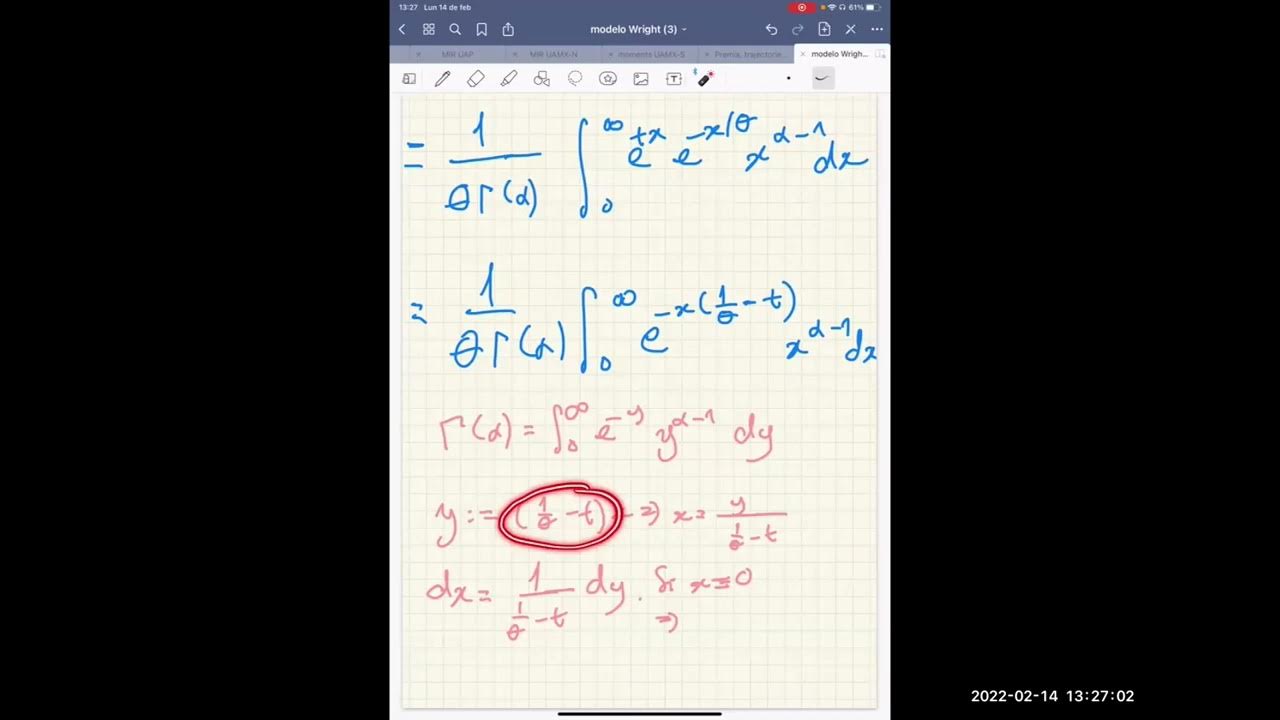 13:27 Lun 14 de feb 61%
modelo Wright (3)
MIR UAP MIR UAMX-N momento UAMX-S Premia, trajectorie... modelo Wrigh...
= 1/(θΓ(α)) ∫₀^∞ e^{tx} e^{-x/θ} x^{α-1} dx
= 1/(θΓ(α)) ∫₀^∞ e^{-x(1/θ - t)} x^{α-1} dx
Γ(α) = ∫₀^∞ e^{-y} y^{α-1} dy
y := (1/θ - t) ⇒ x = y/(1/θ - t)
dx = 1/(1/θ - t) dy. Si x=0
⇒
2022-02-14 13:27:02